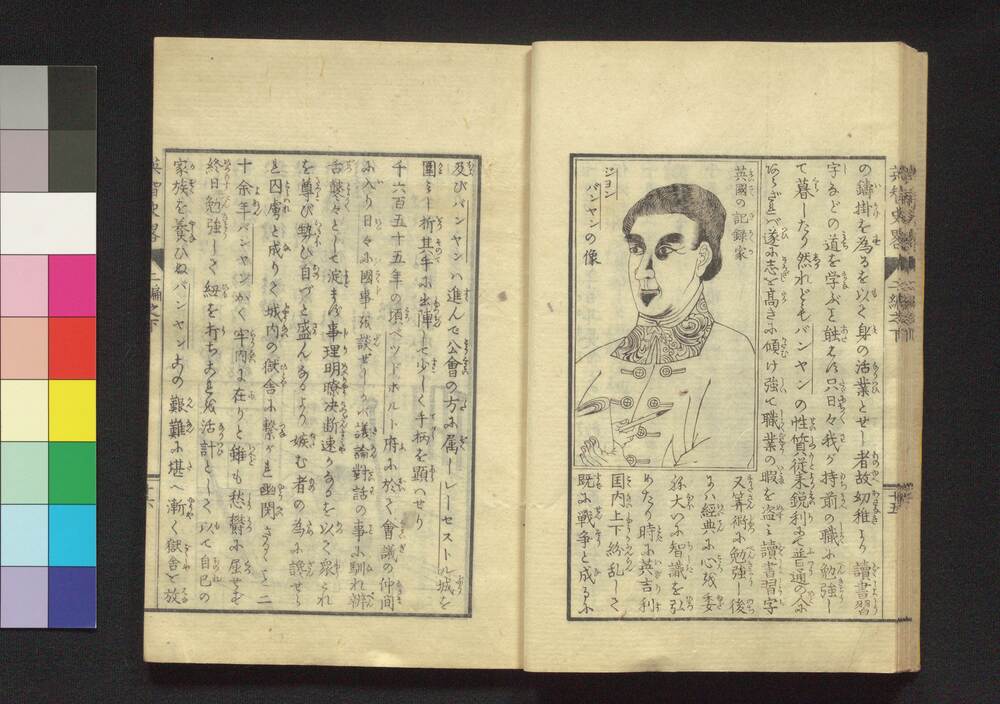 の鑄掛を為るを以く身の活業とせし者故幼稚より讀書習
字などの道を学ぶを能はず只日々我が持前の職を勉強し
て暮したり然れどもバンヤンの性質従来鋭利にて普通の人に
あらざれバ遂に志を高きに傾け強て職業の暇を盗み讀書習字
英國の記録家
ジョン
バンヤンの像
又算術に勉強し後
には經典に心を委
ね大の智識を弘
めたり時に英吉利
国内上下紛乱して
既に戦争と成るに
及びバンヤンハ進んで公會の方に属しレーセストル城を
圍みし折其手に出陣して少しく手柄を顕はせり
千六百五十五年の頃ベツドホルト府に於て會議の仲間
に入り日々に國事を談ぜしが議論對話の事に馴れ辨
舌懸々として淀まず事理明瞭决断速かなるを以く衆これ
を尊び勢ひ自づと盛んなるより嫉む者の為に誤せら
れ囚虜と成りく城内の獄舎に繋がれ幽閑さるゝこと二
十余年バンヤンかく牢内に在りと雖も愁欝に屈せず
終日勉強しく紐を打ちこれを活計としく以て自己の
家族を養ひぬバンヤンこの艱難に堪へ漸く獄舎を放